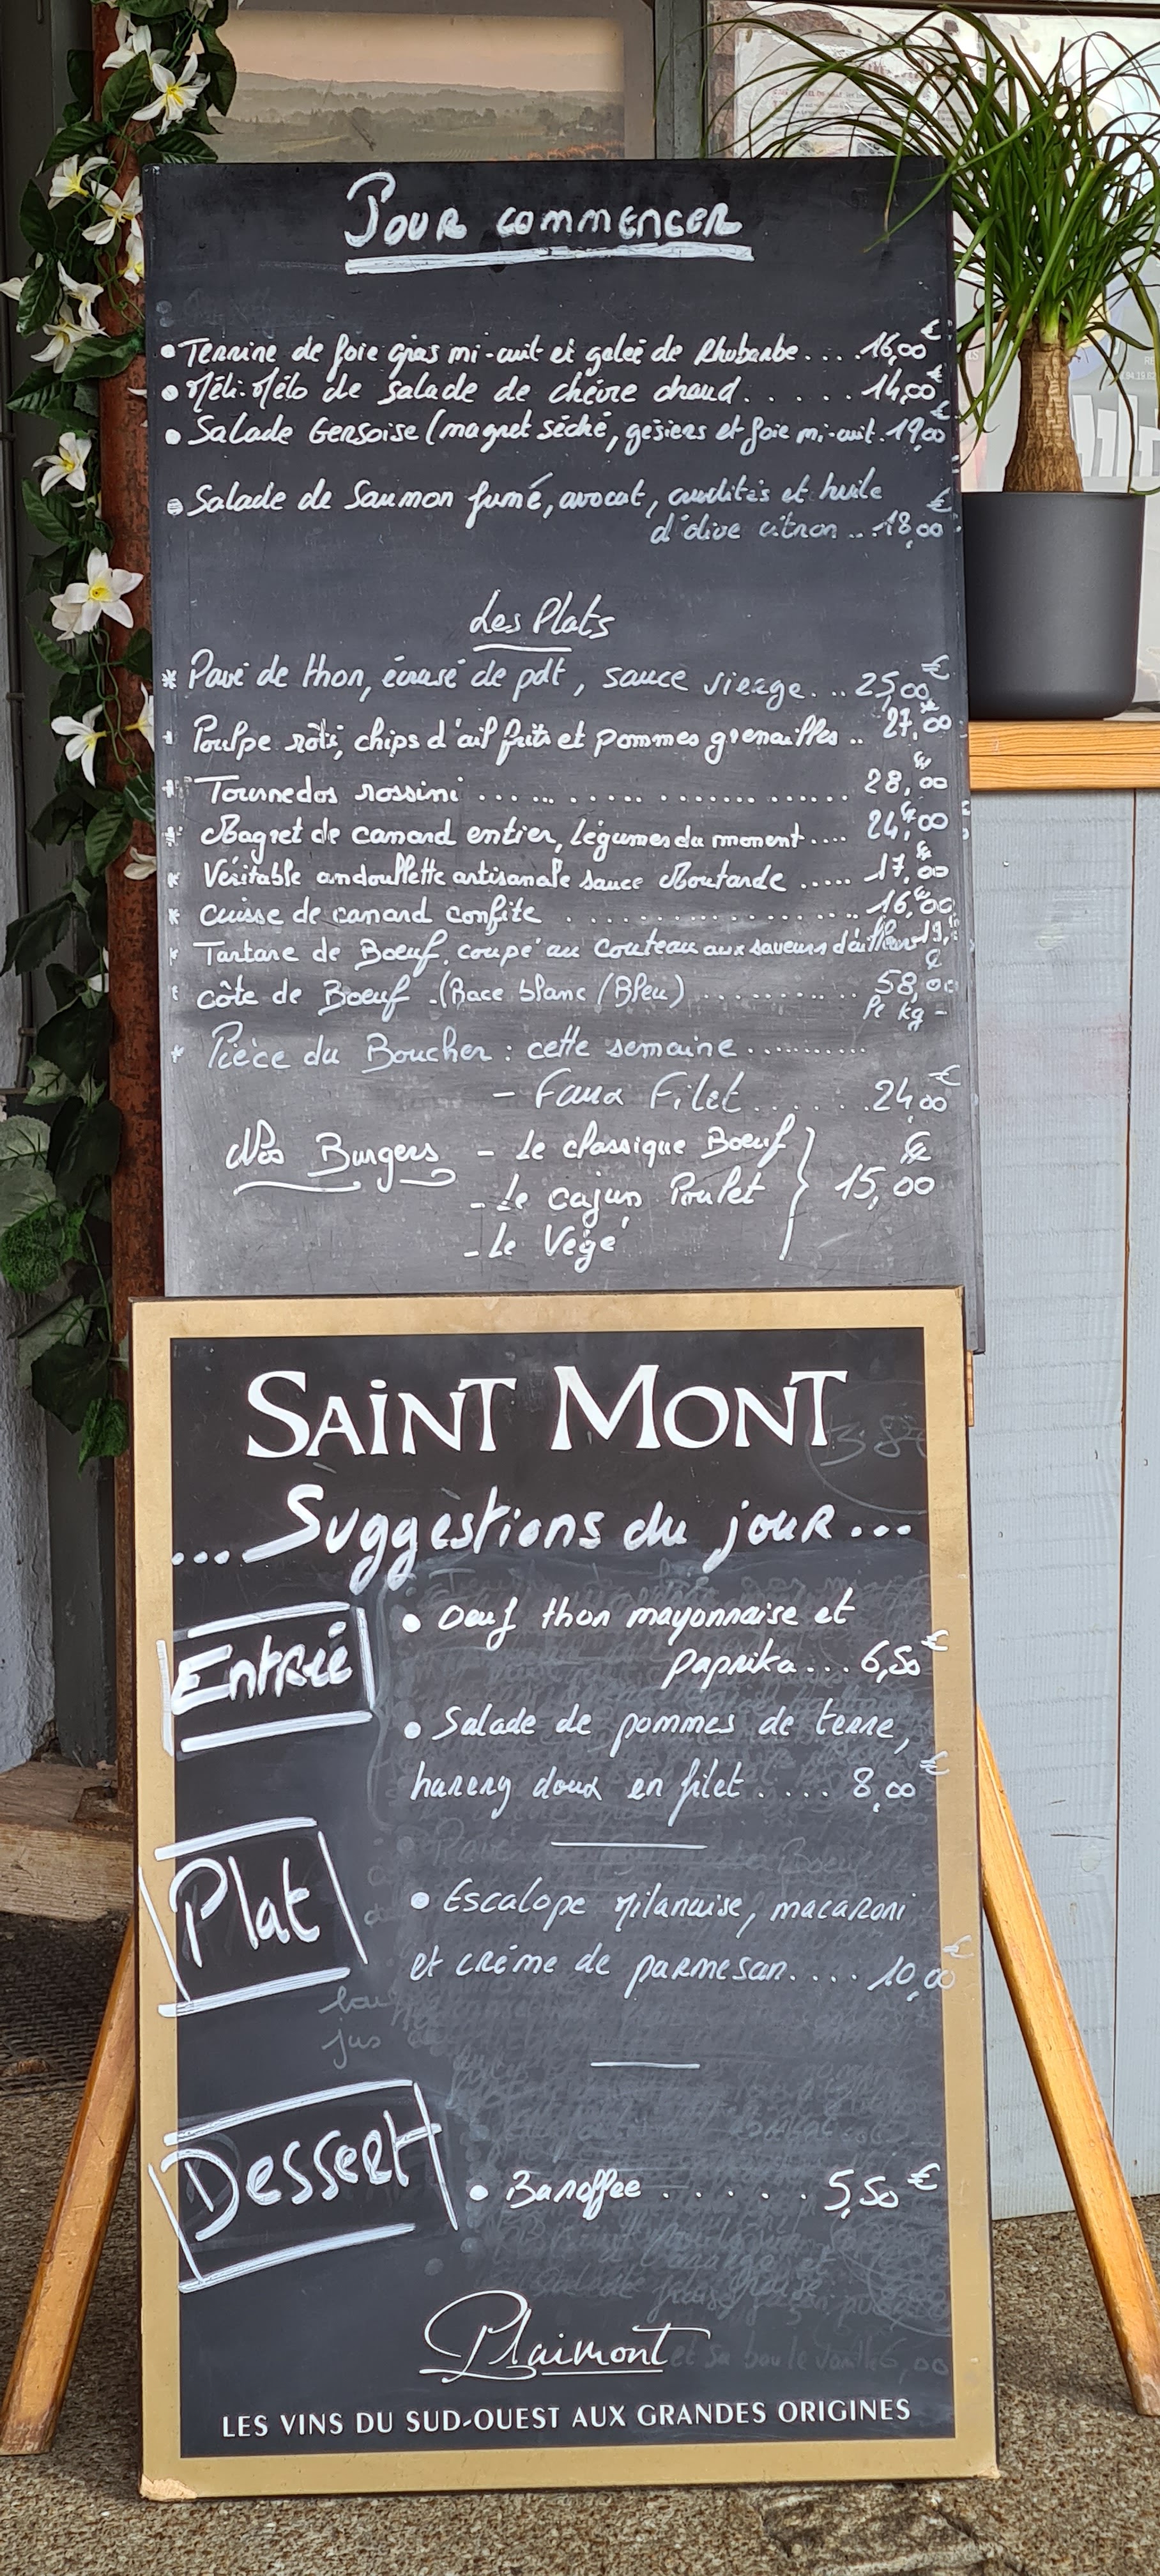 Pour commencer
• Terrine de foie gras mi-cuit et gelée de Rhubarbe... .16,00€
• Méli-Mélo de Salade de chèvre chaud. . . . . .14,00€
• Salade Gersoise (magret séché, gésiers et foie mi-cuit.19,00€
• Salade de Saumon fumé, avocat, crudités et huile
d'olive citron ...18,00€
Les Plats
* Pavé de thon, écrasé de pdt, sauce vierge...25,00€
* Poulpe rôti, chips d'ail frits et pommes grenailles .. 27,00€
* Tournedos rossini .................. 28,00€
* Magret de canard entier, Légumes du moment.... 24,00€
* Véritable andouillette artisanale sauce Moutarde ..... 17,00€
* Cuisse de canard confite ................ 16,00€
* Tartare de Boeuf. coupé au couteau aux saveurs d'ailleurs 19,
* côte de Boeuf .(Race blanc/Bleu).......... 58,00€
le kg -
* Pièce du Boucher : cette semaine..........
- Faux Filet......24,00€
Nos Burgers - Le classique Boeuf
- Le cajun Poulet } 15,00€
- Le Végé
SAINT MONT
...Suggestions du jour...
Entrée
• Oeuf thon mayonnaise et
paprika... 6,50€
• Salade de pommes de terre,
hareng doux en filet .... 8,00€
Plat
• Escalope Milanaise, macaroni
et crème de parmesan.... 10,00€
Dessert
• Banoffee . . . . . . 5,50€
Plaimont
LES VINS DU SUD-OUEST AUX GRANDES ORIGINES